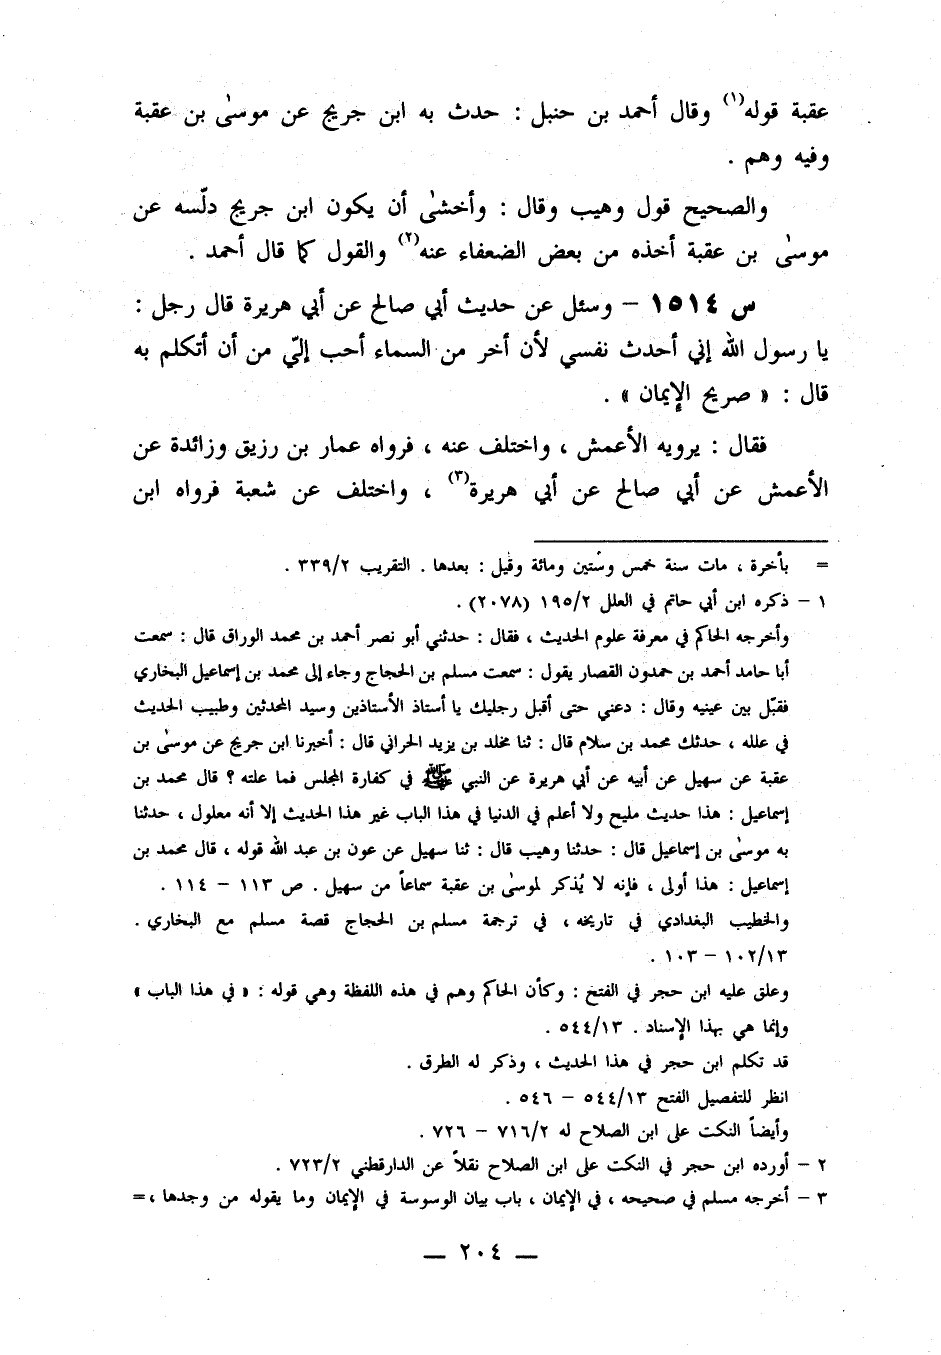 عقبة قوله(١) وقال أحمد بن حنبل : حدث به ابن جريج عن موسىٰ بن عقبة
وفيه وهم .
والصحيح قول وهيب وقال : وأخشىٰ أن يكون ابن جريج دلّسه عن
موسىٰ بن عقبة أخذه من بعض الضعفاء عنه(٢) والقول كما قال أحمد .
س ١٥١٤ – وسئل عن حديث أبي صالح عن أبي هريرة قال رجل :
يا رسول الله إني أحدث نفسي لأن أخر من السماء أحب إليّ من أن أتكلم به
قال : « صريح الإيمان » .
فقال : يرويه الأعمش ، واختلف عنه ، فرواه عمار بن رزيق وزائدة عن
الأعمش عن أبي صالح عن أبي هريرة(٣) ، واختلف عن شعبة فرواه ابن
= بأخرة ، مات سنة خمس وستين ومائة وقيل : بعدها . التقريب ٣٣٩/٢ .
١ – ذكره ابن أبي حاتم في العلل ١٩٥/٢ (٢٠٧٨) .
وأخرجه الحاكم في معرفة علوم الحديث ، فقال : حدثني أبو نصر أحمد بن محمد الوراق قال : سمعت
أبا حامد أحمد بن حمدون القصار يقول : سمعت مسلم بن الحجاج وجاء إلى محمد بن إسماعيل البخاري
فقبّل بين عينيه وقال : دعني حتى أقبل رجليك يا أستاذ الأستاذين وسيد المحدثين وطبيب الحديث
في علله ، حدثك محمد بن سلام قال : ثنا مخلد بن يزيد الحراني قال : أخبرنا ابن جريج عن موسىٰ بن
عقبة عن سهيل عن أبيه عن أبي هريرة عن النبي ﷺ في كفارة المجلس فما علته ؟ قال محمد بن
إسماعيل : هذا حديث مليح ولا أعلم في الدنيا في هذا الباب غير هذا الحديث إلا أنه معلول ، حدثنا
به موسىٰ بن إسماعيل قال : حدثنا وهيب قال : ثنا سهيل عن عون بن عبد الله قوله ، قال محمد بن
إسماعيل : هذا أولى ، فإنه لا يُذكر لموسىٰ بن عقبة سماعاً من سهيل . ص ١١٣ – ١١٤ .
والخطيب البغدادي في تاريخه ، في ترجمة مسلم بن الحجاج قصة مسلم مع البخاري .
١٠٢/١٣ – ١٠٣ .
وعلق عليه ابن حجر في الفتح : وكأن الحاكم وهم في هذه اللفظة وهي قوله : « في هذا الباب »
وإنما هي بهذا الإسناد . ٥٤٤/١٣ .
قد تكلم ابن حجر في هذا الحديث ، وذكر له الطرق .
انظر للتفصيل الفتح ٥٤٤/١٣ – ٥٤٦ .
وأيضاً النكت على ابن الصلاح له ٧١٦/٢ – ٧٢٦ .
٢ – أورده ابن حجر في النكت على ابن الصلاح نقلاً عن الدارقطني ٧٢٣/٢ .
٣ – أخرجه مسلم في صحيحه ، في الإيمان ، باب بيان الوسوسة في الإيمان وما يقوله من وجدها ،=
— ٢٠٤ —